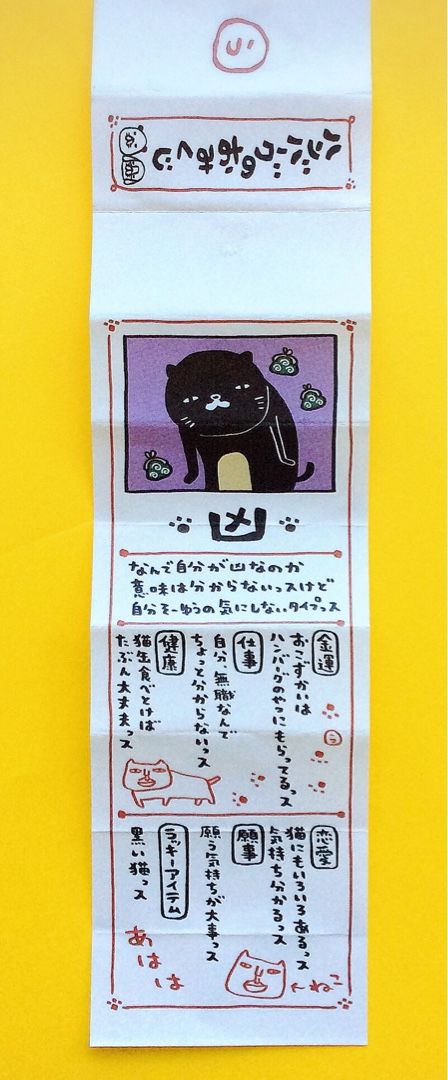 ハンバーグのおみくじ
凶
なんで自分が凶なのか
意味は分からないっスけど
自分そーゆうの気にしないタイプっス
金運
おこずかいは
ハンバーグのやつにもらってるっス
仕事
自分、無職なんで
ちょっと分からないっス
健康
猫生食べとけば
たぶん大丈夫っス
恋愛
猫にもいろいろあるっス
気持ち分かるっス
願事
願う気持ちが大事っス
ラッキーアイテム
黒い猫っス
あはは
←ねこ